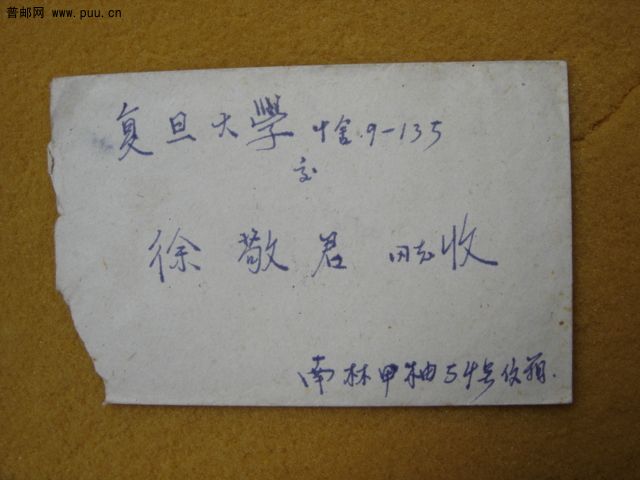 普邮网 www.puu.cn
复旦大學 叶舍.9-135
交
徐敬君 同志收
南林甲柚54号